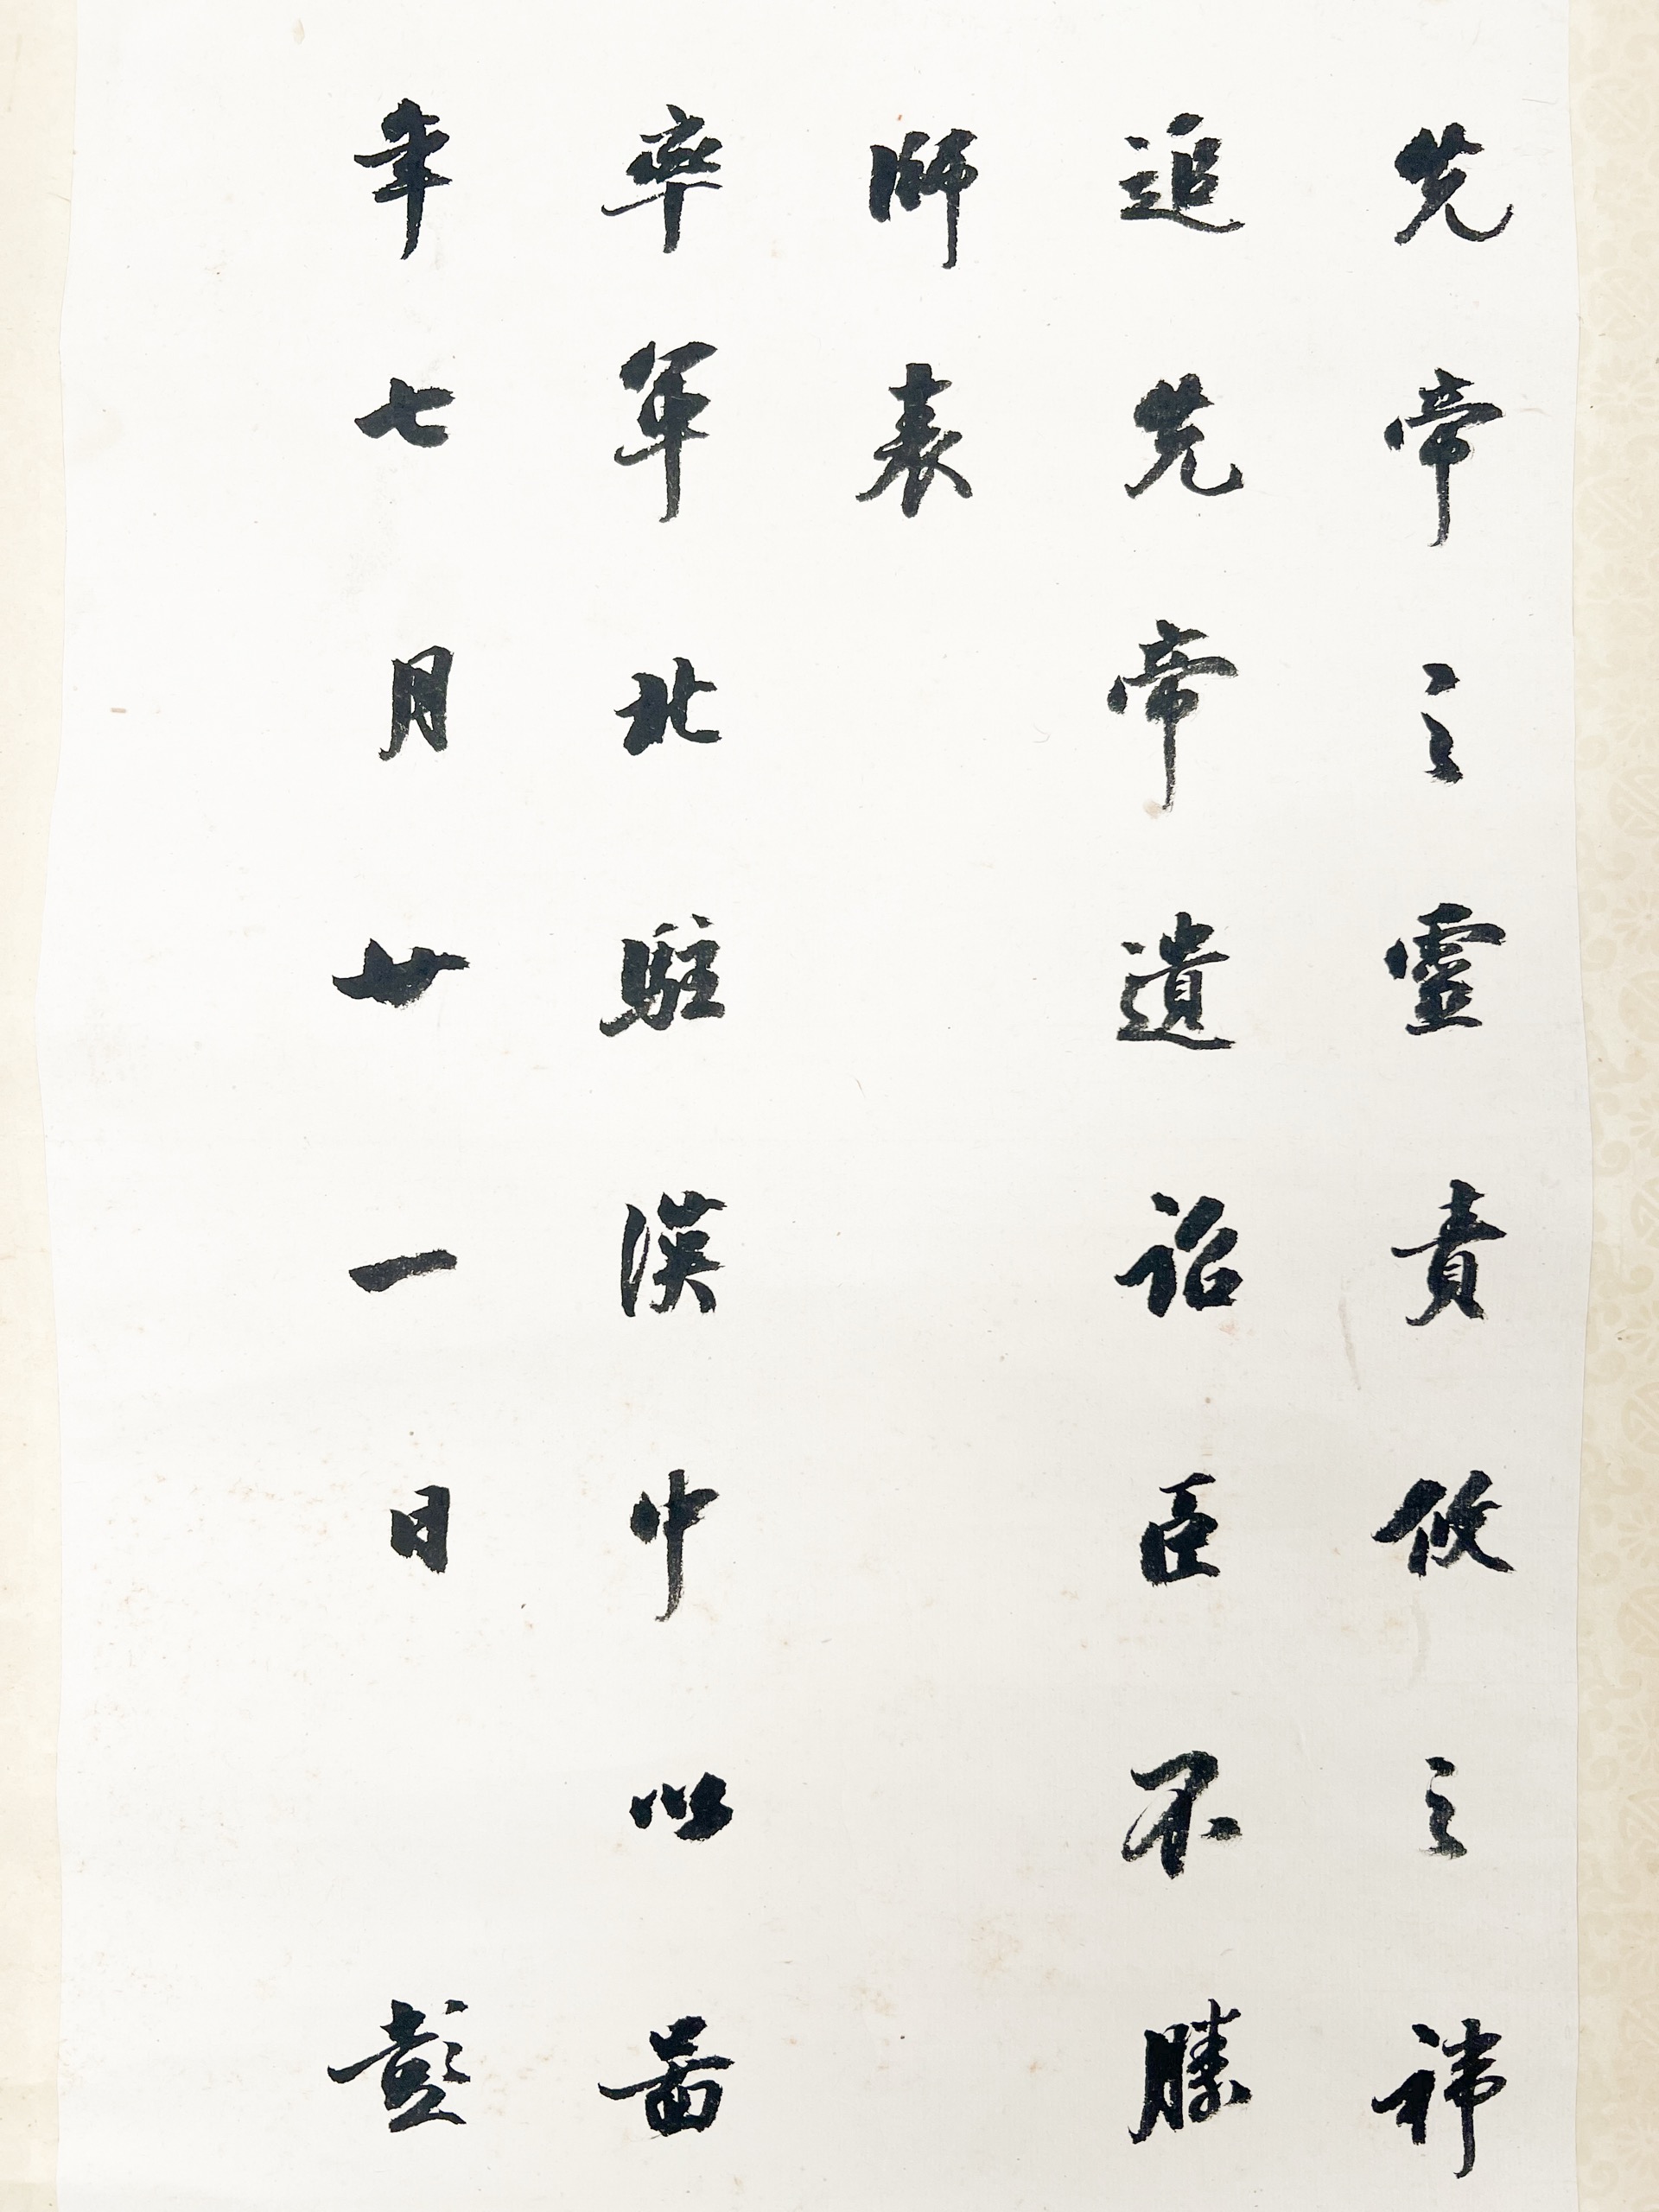 先帝之靈責攸之禕
追先帝遺詔臣不勝
師表
率軍北駐漢中以啚
年七月廿一日 彭